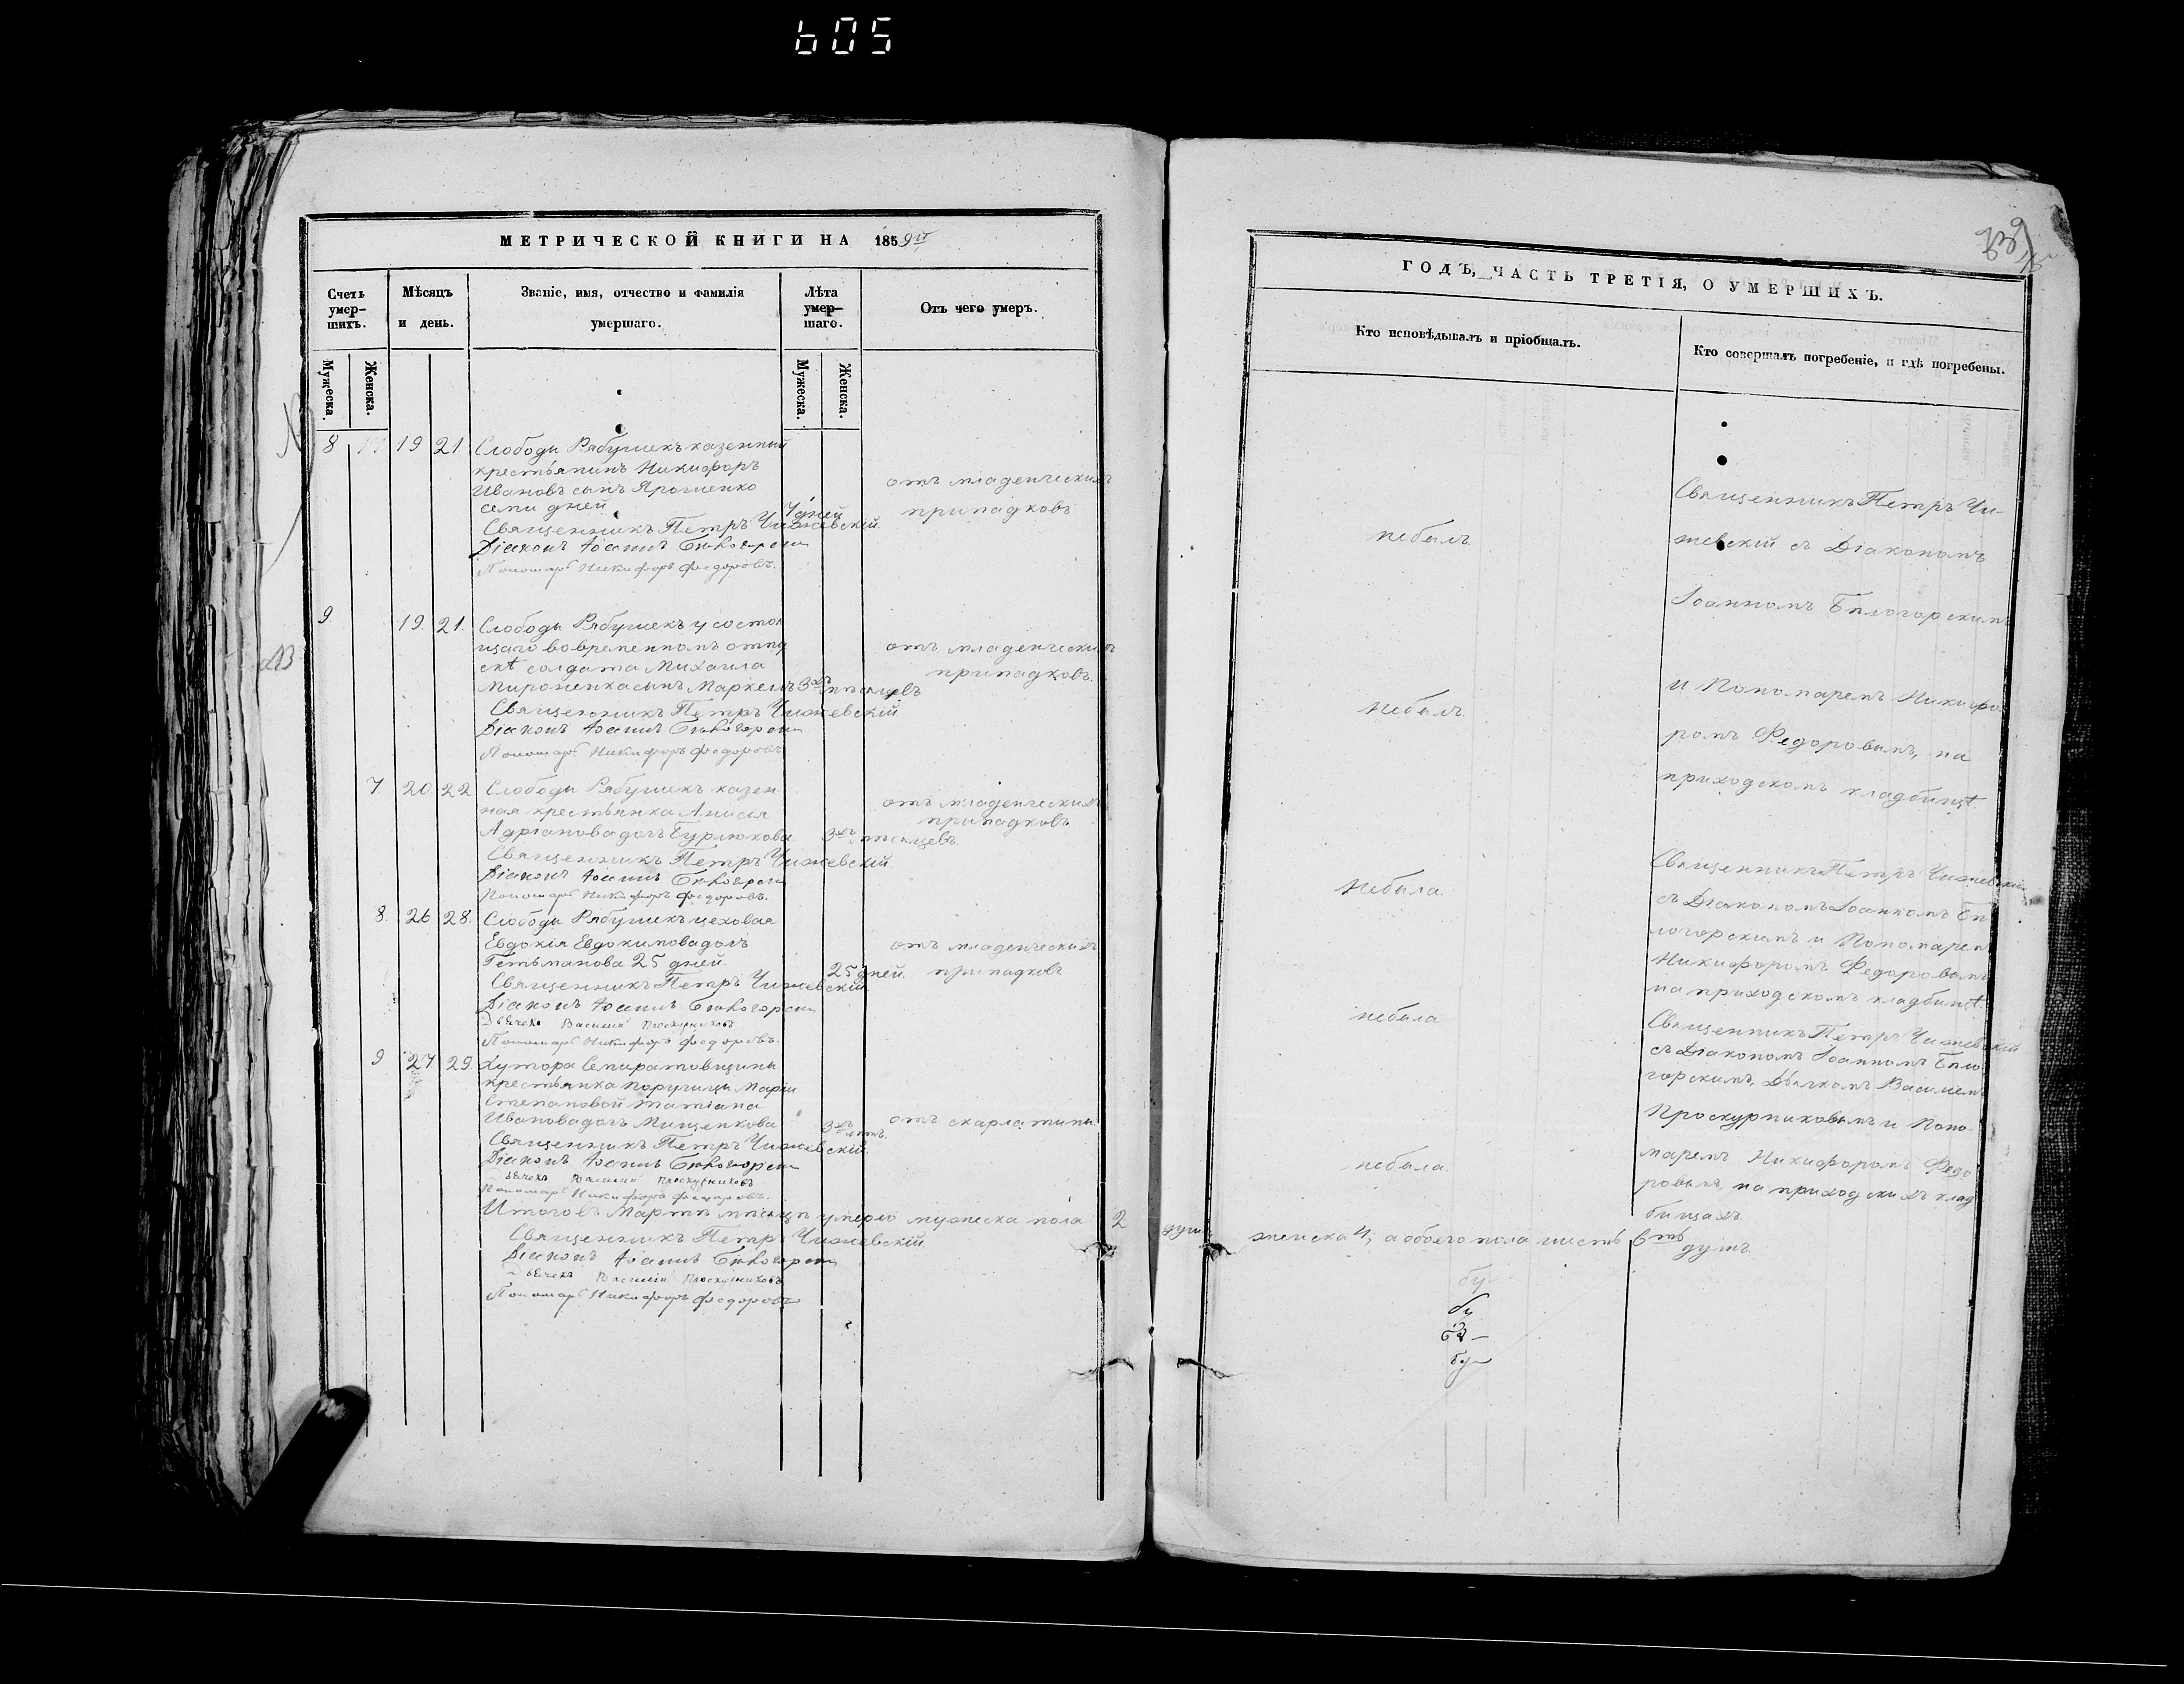 605
МЕТРИЧЕСКОЙ КНИГИ НА 1859й
Счетъ умер-шихъ.
Мѣсяцъ и день.
Званіе, имя, отчество и фамилія умершаго.
Лѣта умер-шаго.
Отъ чего умеръ.
Мужеска.
Женска.
Мужеска.
Женска.
8 19 21 Слободы Рябушекъ казенный
крестьянинъ Никифоръ
Ивановъ сынъ Ярошенко
семи дней
7 дней
отъ младенческихъ
припадковъ
Священникъ Петръ Чижевскій.
Діаконъ Іоаннъ Бѣлогорскій
Пономарь Никифоръ Федоровъ.
9 19. 21. Слободы Рябушекъ у состоя
щаго вовременномъ отпу
скѣ солдата Михаила
Мироненка сынъ Маркеллъ 3хъ мѣсяцевъ
отъ младенческихъ
припадковъ.
Священникъ Петръ Чижевскій
Діаконъ Іоаннъ Бѣлогорскій
Пономарь Никифоръ Федоровъ
7 20. 22 Слободы Рябушекъ казен
ная крестьянка Анисія
Адріанова дочь Бурлюкова 3хъ мѣсяцевъ.
отъ младенческихъ
припадковъ
Священникъ Петръ Чижевскій.
Діаконъ Іоаннъ Бѣлогорскій
Пономарь Никифоръ Федоровъ.
8. 26 28. Слободы Рябушекъ цеховая
Евдокія Евдокимова дочь
Гетьманова 25 дней.
25 дней.
отъ младенческихъ
припадковъ
Священникъ Петръ Чижевскій
Діаконъ Іоаннъ Бѣлогорскій
Дьячекъ Василій Проскурниковъ
Пономарь Никифоръ Федоровъ.
9 27. 29. Хутора Семиратовщины
крестьянка поручицы Маріи
Степановой Татіана
Иванова дочь Мищенкова 3хъ лѣтъ.
отъ скарлатины
Священникъ Петръ Чижевскій.
Діаконъ Іоаннъ Бѣлогорскій
Дьячекъ Василій Проскурниковъ
Пономарь Никифоръ Федоровъ.
Итого въ Мартѣ мѣсяцѣ умерло мужеска пола 2 душ
Священникъ Петръ Чижевскій.
Діаконъ Іоаннъ Бѣлогорскій
Дьячекъ Василій Проскурниковъ
Пономарь Никифоръ Федоровъ
ГОДЪ, ЧАСТЬ ТРЕТІЯ, О УМЕРШИХЪ.
Кто исповѣдывалъ и пріобщалъ.
Кто совершалъ погребеніе, и гдѣ погребены.
небылъ
Священникъ Петръ Чи-
жевскій съ Діакономъ
Іоанномъ Бѣлогорскимъ
небылъ.
и Пономаремъ Никифо
ромъ Федоровымъ, на
приходскомъ кладбищѣ.
небыла.
Священникъ Петръ Чижевскій
съ Діакономъ Іоанномъ Бѣ
логорскимъ и Пономарем
Никифоромъ Федоровымъ
на приходскомъ кладбищѣ
небыла
Священникъ Петръ Чижевскій
съ Діакономъ Іоанномъ Бѣло
горскимъ, Дьячкомъ Василіемъ
Проскурниковымъ и Поно
небыла.
маремъ Никифоромъ Федо
ровымъ, на приходскихъ клад
бищахъ.
женска 4; а обоего пола шесть 6ть
душъ.